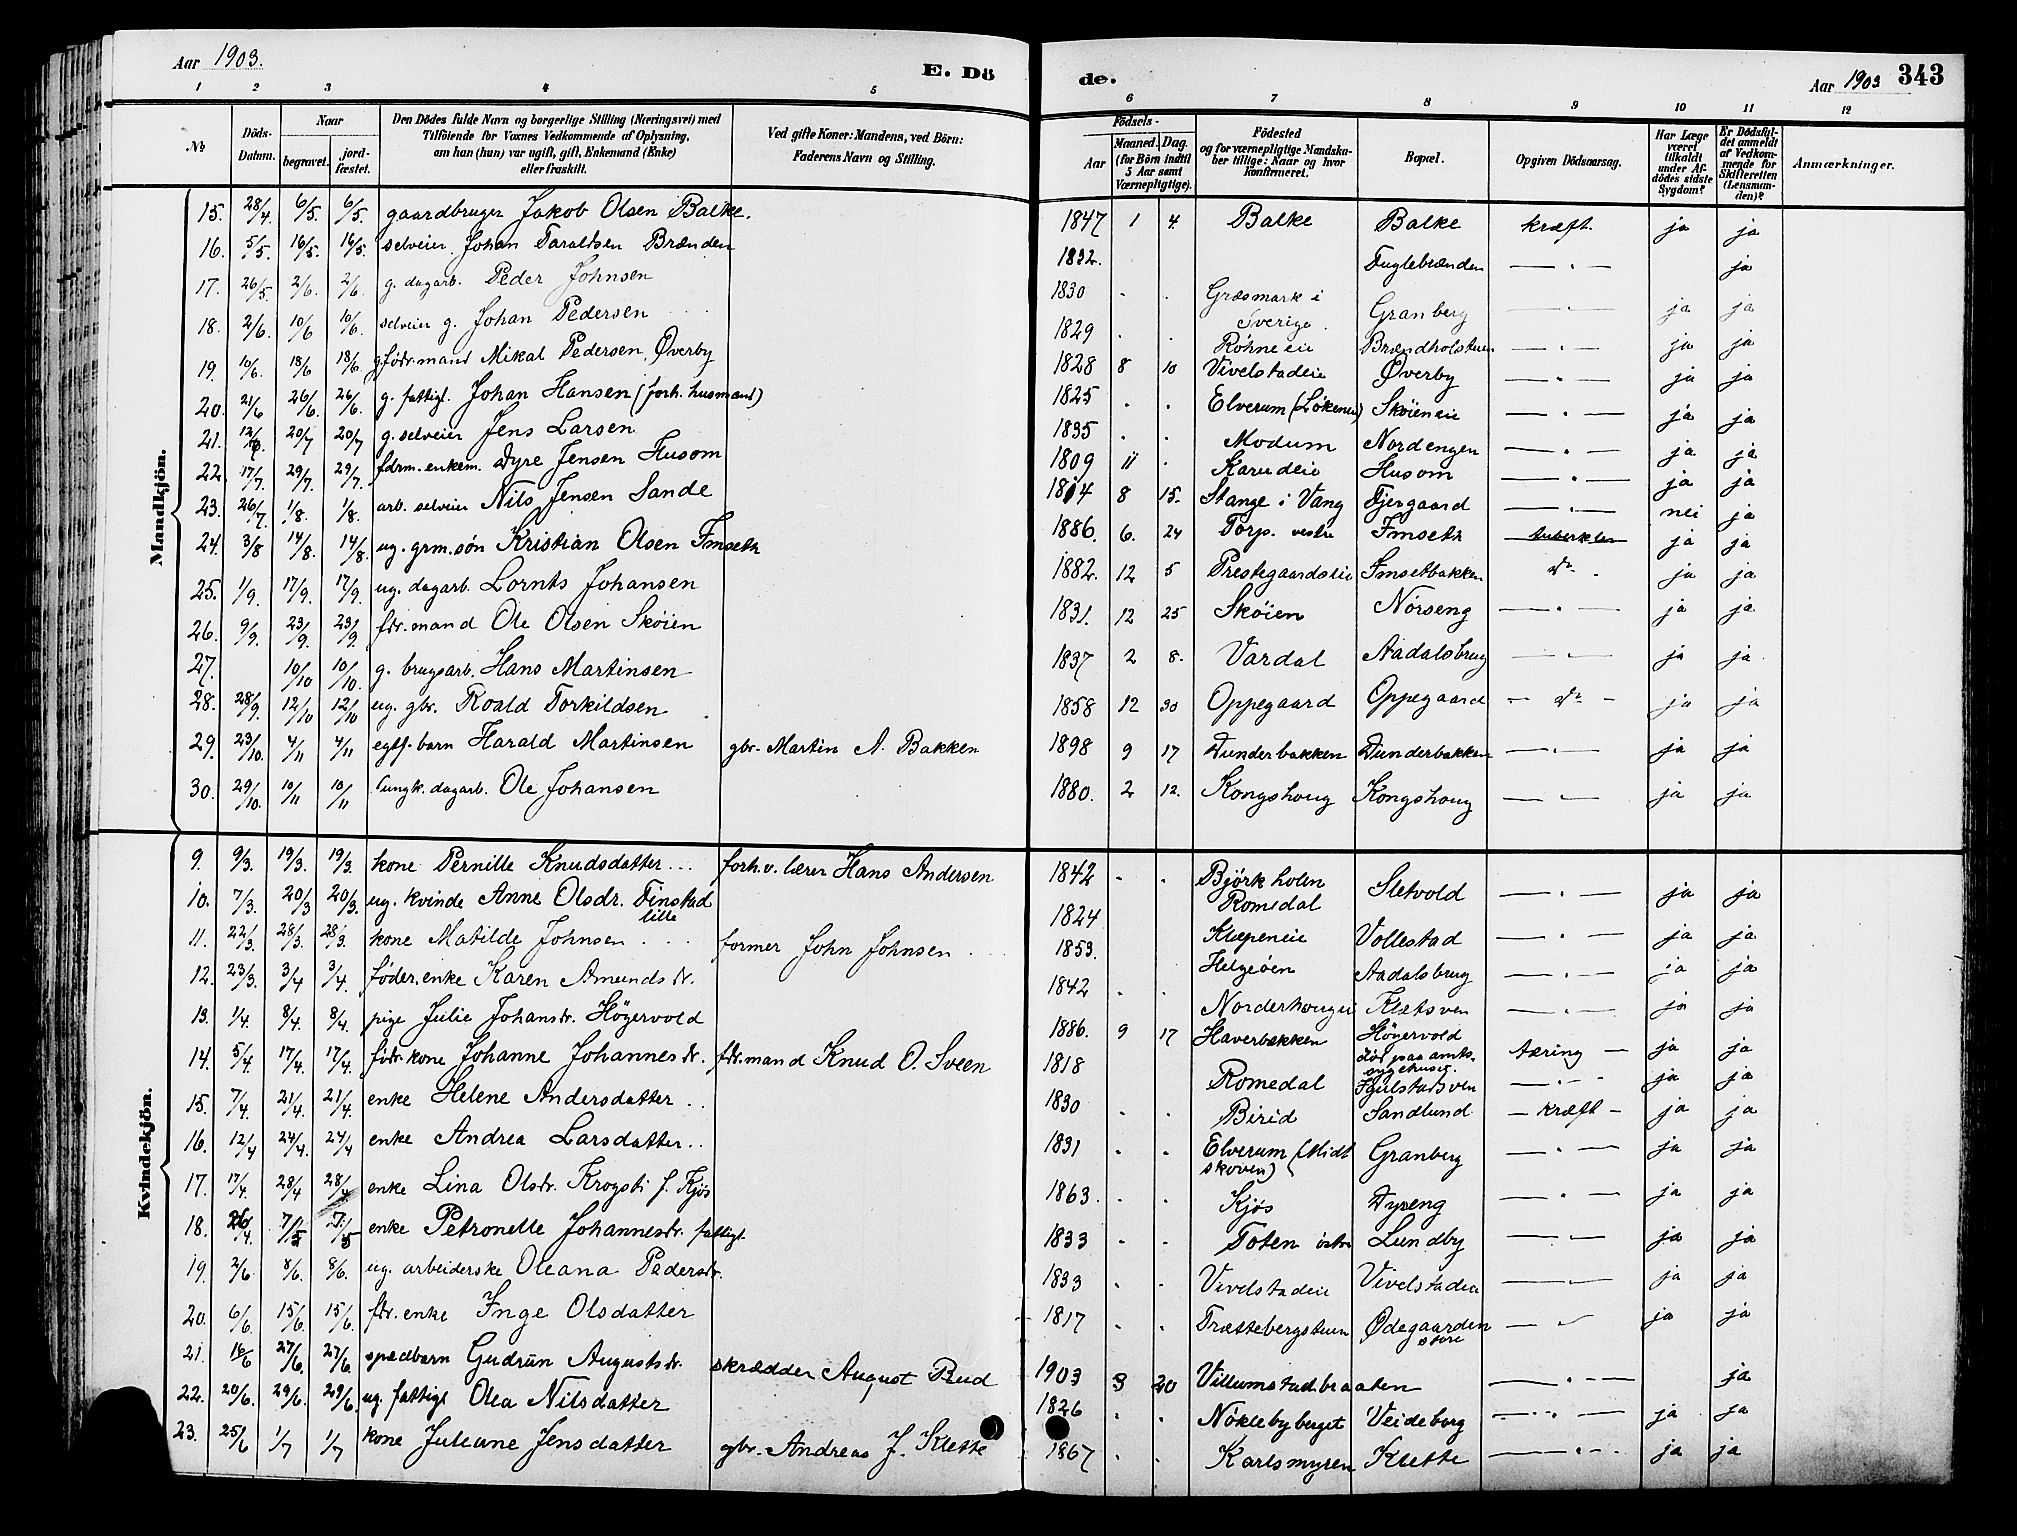 Aar 1903.
E. Dö
de.
Aar 1903
343
1 2 3 4 5 6 7 8 9 10 11 12
No.
Döds-Datum.
Naar
begravet.
jord-fæstet.
Den Dödes fulde Navn og borgerlige Stilling (Næringsvei) med
Tilföiende for Voxnes Vedkommende af Oplysning,
om han (hun) var ugift, gift, Enkemand (Enke)
eller fraskilt.
Ved gifte Koner: Mandens, ved Börn:
Faderens Navn og Stilling.
Födsels-
Aar
Maaned. Dag.
(for Börn indtil
5 Aar samt
Værnepligtige).
Födested
og for værnepligtige Mandska-
ber tillige: Naar og hvor
konfirmeret.
Bopæl.
Opgiven Dödsaarsag.
Har Læge
været
tilkaldt
under Af-
dödes sidste
Sygdom?
Er Dödsfal-
det anmeldt
af Vedkom-
mende for
Skifteretten
(Lensman-
den)?
Anmærkninger.
Mandkjön.
15. 28/4 6/5. 6/5. gaardbruger Jakob Olsen Balke. 1847 1 4. Balke Balke kræft. ja ja
16. 5/5. 16/5. 16/5 selveier Johan Taraldsen Brænden 1832. Fuglebrænden — " — ja
17. 26/5 2/6. 2/6. g. dagarb. Peder Johnsen 1830 . . Græsmark i Sverige. Granberg — " — ja ja
18. 2/6. 10/6 10/6. selveier g. Johan Pedersen 1829 . . Röhneeie Brændholstuen — " — ja ja
19. 10/6. 18/6 18/6. g. födr. mand Mikal Pedersen Øverby 1828 8 10 Vivelstadeie Øverby — " — ja ja
20. 21/6 26/6. 26/6. g. fattigl. Johan Hansen (forh. husmand) 1825 . . Elverum (Lökenes) Sköieneie — " — ja ja
21. 12/7 20/7 20/7 g. selveier Jens Larsen 1835 . . Modum Nordengen — " — ja ja
22. 17/7. 29/7. 29/7. fdrm. enkem. Dyre Jensen Husom 1809 11 . Karudeie Husom — " — ja ja
23. 26/7. 1/8. 1/8. arb. selveier Nils Jensen Sande 1814 8 15. Stange i Vang Fjergaard — " — nei ja
24. 3/8 14/8. 14/8. ug. grm. sön Kristian Olsen Imseth 1886. 6. 24 Torp. vestre Imseth tuberkler ja ja
25. 1/9. 17/9. 17/9. ug. dagarb. Lornts Johansen 1882. 12 5 Prestegaardseie Imsetbakken do. ja ja
26. 9/9. 23/9. 23/9. fdr. mand Ole Olsen Sköien 1831. 12 25 Sköien Nörseng — " — ja ja
27. 10/10 10/10. g. brugsarb. Hans Martinsen 1837 2 8. Vardal Aadalsbrug — " — ja ja
28. 28/9. 12/10 12/10 ug. gbr. Roald Torkildsen 1858 12 30 Oppegaard Oppegaard — do — ja ja
29. 23/10. 4/11 4/11 egtf. barn Harald Martinsen gbr. Martin A. Bakken 1898 9 17 Dunderbakken Dunderbakken — " — ja ja
30. 29/10. 10/11 10/11 ungk. dagarb. Ole Johansen 1880. 2 12. Kongshoug Kongshoug — " — ja ja
Kvindekjön.
9. 9/3. 19/3. 19/3. kone Pernille Knudsdatter... forh. v. lærer Hans Andersen 1842 . . Björkholen Romedal Sletvold — " — ja ja
10. 7/3. 20/3 20/3. ug. kvinde Anne Olsdr. Finstad lille 1824 Klæpeneie Vollestad — " — ja ja
11. 22/3. 28/3. 28/3. kone Matilde Johnsen former John Johnsen 1853. Helgeöen Aadalsbrug — " — ja ja
12. 23/3. 3/4 3/4. föder. enke Karen Amundsdr. 1842 . . Norderhougeie Kletsven — " — ja ja
13. 1/4. 8/4. 8/4. pige Julie Johansdr. Högervold 1886. 9 17 Haverbakken Högervold död paa amtssygehuset. tæring — ja ja
14. 5/4 17/4. 17/4. födr. kone Johanne Johannesdr. fdr. mand Knud O. Sveen 1818 Romedal Hjulstadsven — " — ja ja
15. 7/4. 21/4. 21/4. enke Helene Andersdatter.. 1830 . . Birid Sandlund — kræft — ja ja
16. 12/4 24/4. 24/4 enke Andrea Larsdatter.. 1831 . . Elverum (Midtskoven) Granberg — " — ja ja
17. 17/4. 28/4 28/4 enke Lina Olsdr. Krogsti f. Kjös 1863. . . Kjös Dyreng — " — ja ja
18. 26/4. 7/5 7/5 enke Petronelle Johannesdr. fattigl. 1833 . . Toten östre Lundby — " — ja ja
19. 2/6 8/6. 8/6. ug. arbeiderske Oleana Pedersdr. 1833 . . Vivelstadeie Vivelstadeie — " — ja ja
20. 6/6. 15/6. 15/6. fdr. enke Inge Olsdatter 1817 . . Trættebergstuen Ødegaarden store — " — ja ja
21. 16/6 27/6. 27/6. spædbarn Gudrun Augustsdr. skrædder August Rud 1903 3 20 Villumstadbraaten — " — ja
22. 20/6. 29/6. 29/6. ug. fattigl Olea Nilsdatter 1826 . . Nöklebyberget Veideborg — " — ja ja
23. 25/6 1/7 1/7 kone Juleane Jensdatter gbr. Andreas J. Klette 1867 . . Karlsmyren Klette — " — ja ja